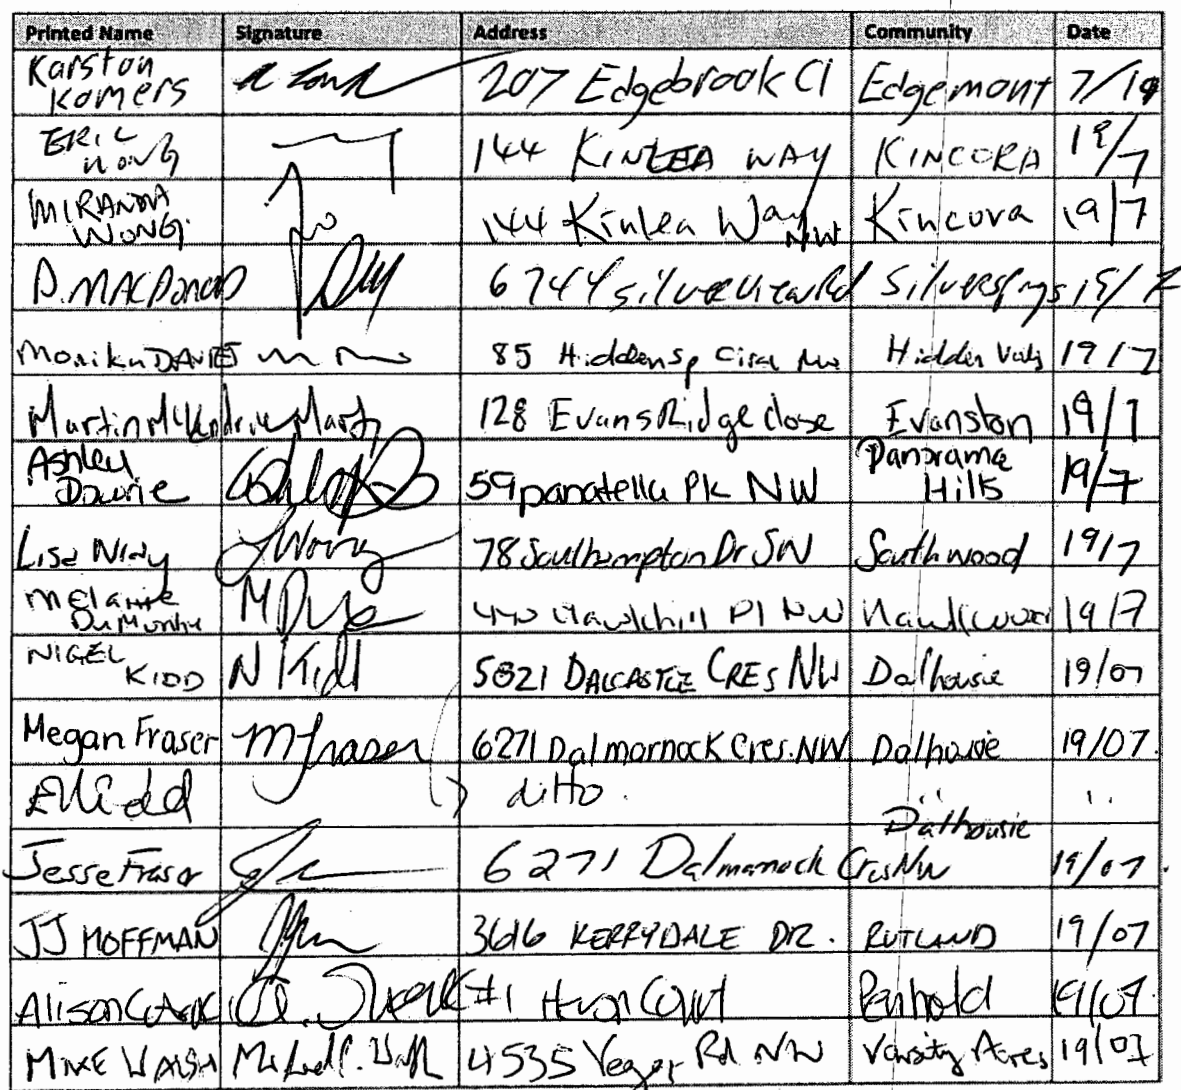 Printed Name Signature Address Community Date
Karston Komers 207 Edgebrook Cl Edgemont 7/19
ERIC WONG 144 KINLEA WAY KINCORA 19/7
MIRANDA WONG 144 Kinlea Way NW Kincora 19/7
D. MACDONALD 6744 Silverview Rd Silversprings 19/7
Monika DAVIES 85 Hidden Sp Circl NW Hidden Valy 19/7
Martin McKendrie Martin 128 EvansRidge close Evanston 19/7
Ashley Downie 59 panatella PK NW Panorama Hills 19/7
Lisa LWong 78 Southampton Dr SW Southwood 19/7
Melanie 440 Hawkhill Pl NW Hawkwood 19/7
NIGEL KIDD N Kidd 5821 DALCASTLE CRES NW Dalhousie 19/07
Megan Fraser MFraser 6271 Dalmarnock Cres. NW Dalhousie 19/07.
EKidd ditto. " "
Dalhousie
Jesse Fraser 6271 Dalmarnock Cres NW 19/07.
JJ HOFFMAN 3616 KERRYDALE DR. RUTLAND 19/07
Alison #1 Huron Court Penhold 19/07
MIKE WALSH 4535 Yeger Rd NW Varsity Acres 19/07